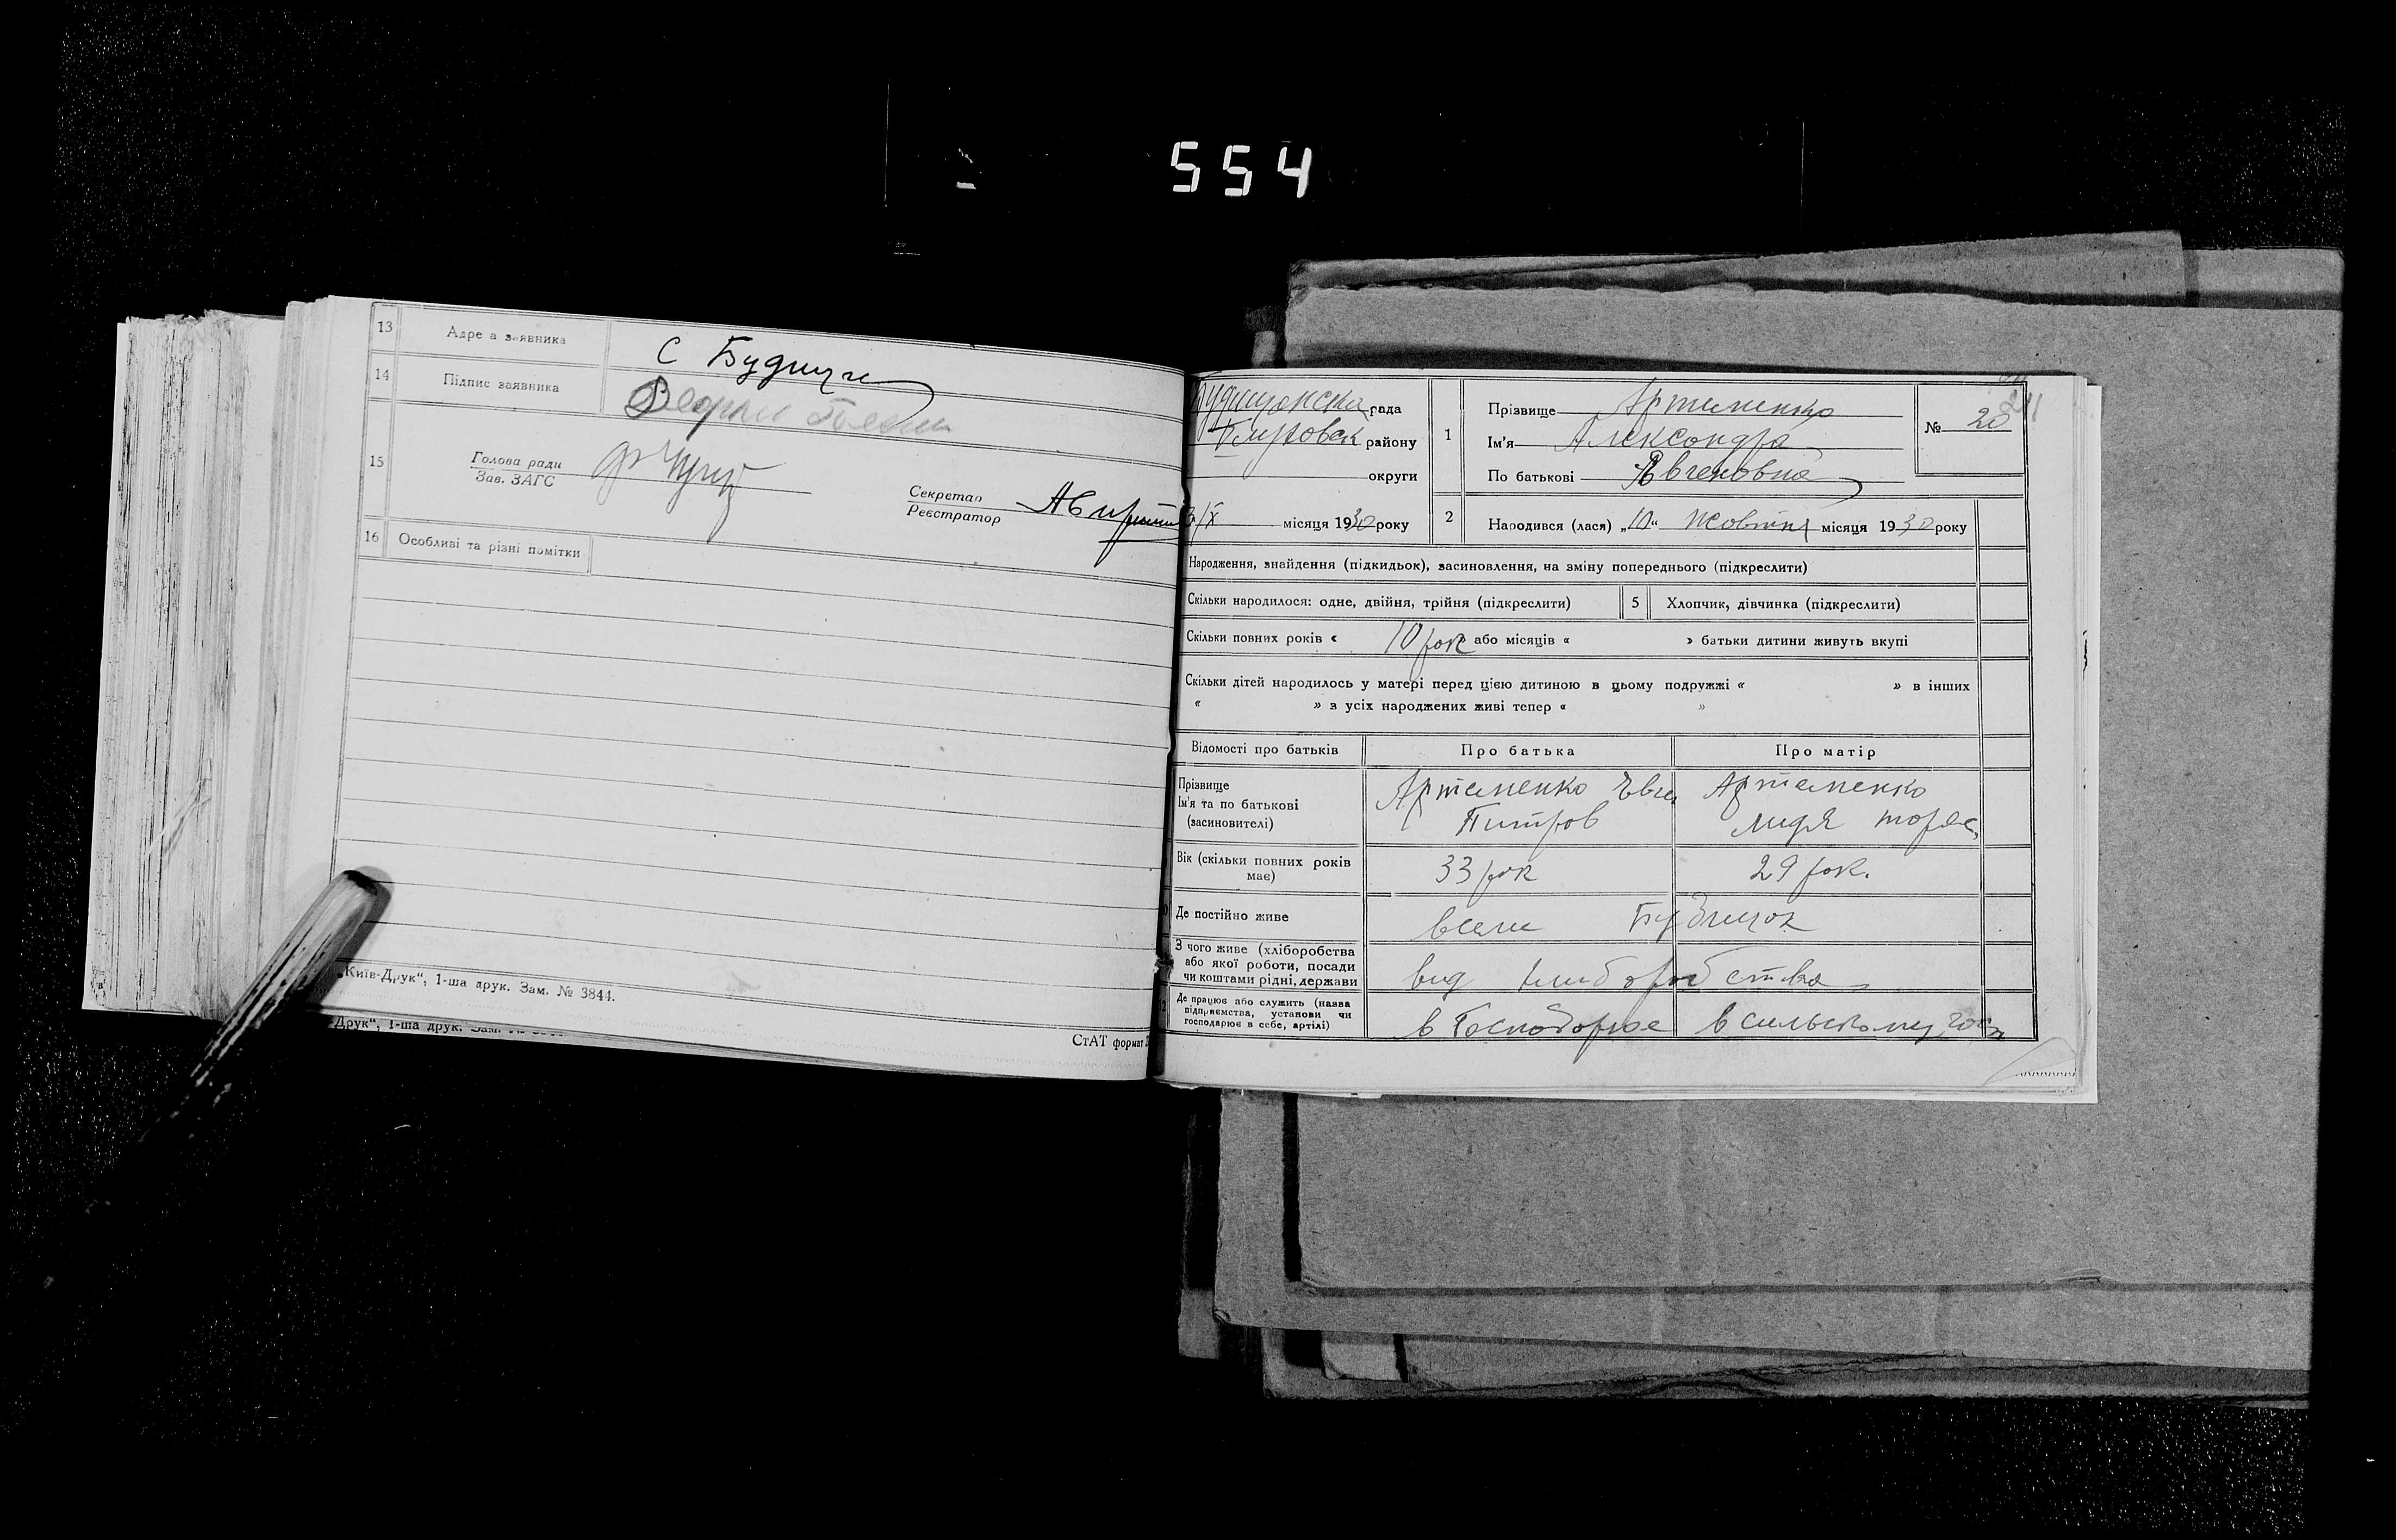 554
13 Адре а заявника С Будищи
14 Підпис заявника
15 Голова ради
Зав. ЗАГС
Секретар
Реєстратор
16 Особливі та різні помітки
„Київ-Друк“, 1-ша друк. Зам. № 3844.
Друк“, 1-ша друк. Зам.
СтАТ формат
рада
району
округи
/X місяця 1930 року
1 Прізвище Артеменко
Ім'я Александра
По батькові Явгеновна
№ 20
2 Народився (лася) „10“ Жовтня місяця 1930 року
Народження, знайдення (підкидьок), засиновлення, на зміну попереднього (підкреслити)
Скільки народилося: одне, двійня, трійня (підкреслити) 5 Хлопчик, дівчинка (підкреслити)
Скільки повних років « 10 рок або місяців « » батьки дитини живуть вкупі
Скільки дітей народилось у матері перед цією дитиною в цьому подружжі « » в інших
« » з усіх народжених живі тепер « »
Відомості про батьків Про батька Про матір
Прізвище
Ім'я та по батькові
(засиновителі)
Артеменко Євген Артеменко
Питров
Вік (скільки повних років
має)
33 рок 29 рок.
Де постійно живе
всели Будищах
З чого живе (хліборобства
або якої роботи, посади
чи коштами рідні, держави
вид хлиборобства
Де працює або служить (назва
підприємства, установи чи
господарює в себе, артілі)
в Господорюе в сильскому гос